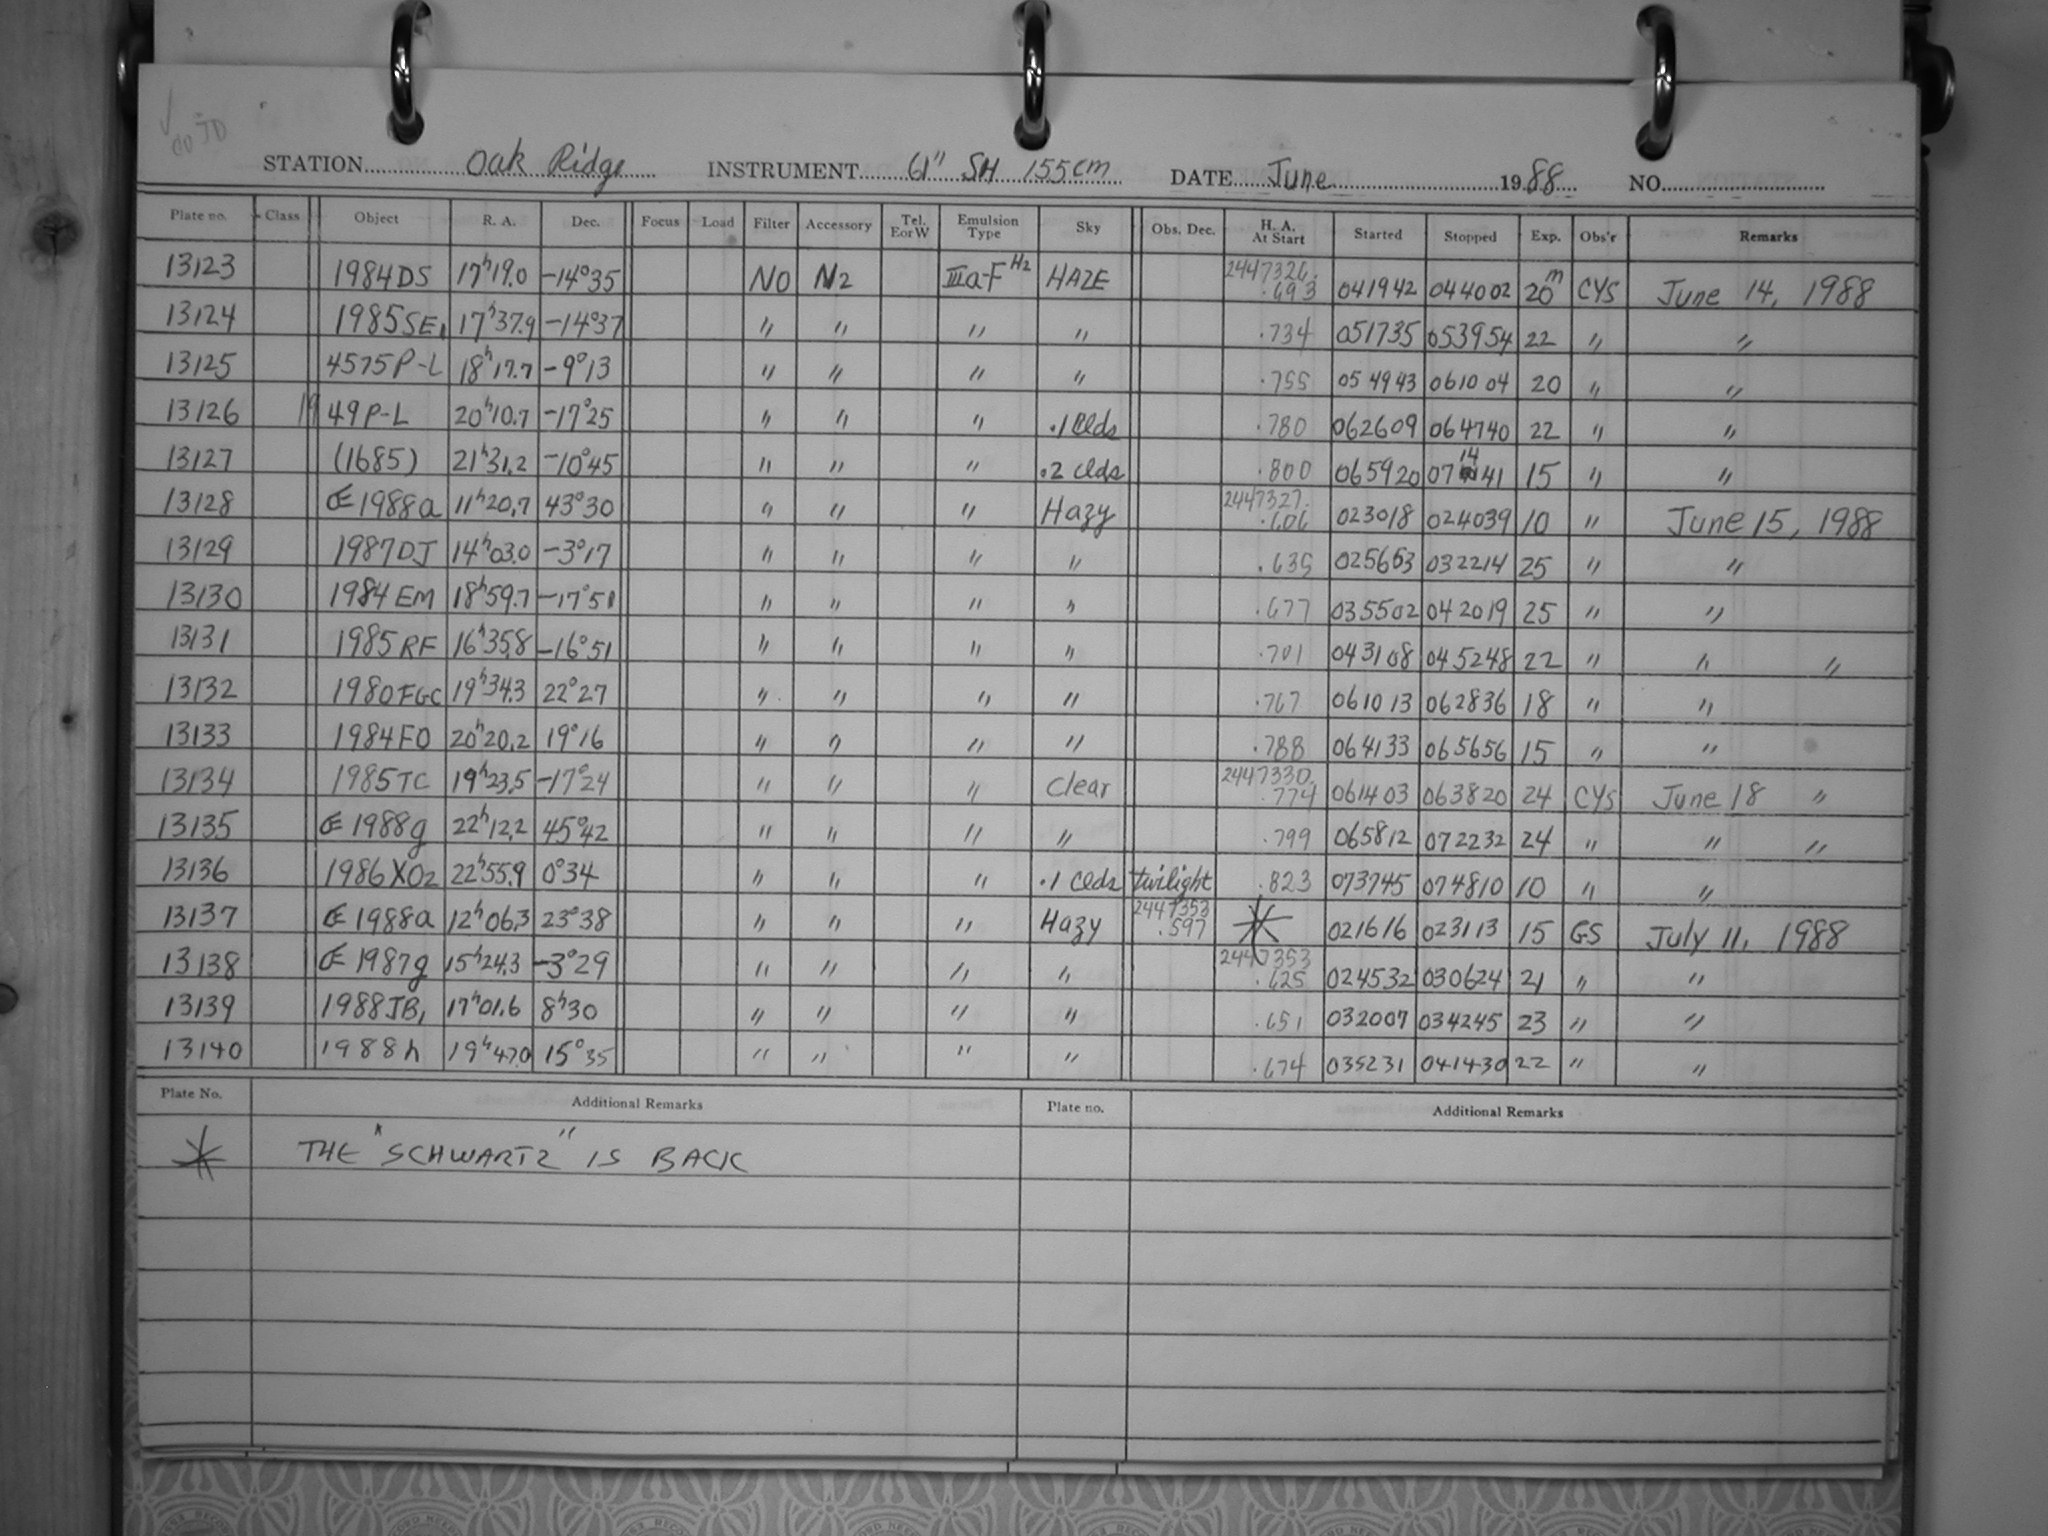 ✓ to JD
STATION Oak Ridge INSTRUMENT 61" SH 155cm DATE June 1988 NO.
Plate no. Class Object R. A. Dec. Focus Load Filter Accessory Tel. E or W Emulsion Type Sky Obs. Dec. H. A. At Start Started Stopped Exp. Obs'r Remarks
13123 1984DS 17h19.0 -14°35 NO N2 IIIa-F H2 HAZE 2447326. .693 041942 044002 20m CYS June 14, 1988
13124 1985SE1 17h37.9 -14°37 " " " " .734 051735 053954 22 " "
13125 4575P-L 18h17.7 -9°13 " " " " .755 054943 061004 20 " "
13126 19 49P-L 20h10.7 -17°25 " " " .1 Clds .780 062609 064740 22 " "
13127 (1685) 21h31.2 -10°45 " " " .2 clds .800 065920 071441 15 " "
13128 1988a 11h20.7 43°30 " " " Hazy 2447327. .606 023018 024039 10 " June 15, 1988
13129 1987DJ 14h03.0 -3°17 " " " " .635 025653 032214 25 " "
13130 1984EM 18h59.7 -17°51 " " " " .677 035502 042019 25 " "
13131 1985RF 16h35.8 -16°51 " " " " .701 043108 045248 22 " " "
13132 1980FGC 19h34.3 22°27 " " " " .767 061013 062836 18 " "
13133 1984FO 20h20.2 19°16 " " " " .788 064133 065656 15 " "
13134 1985TC 19h23.5 -17°24 " " " Clear 2447330. .774 061403 063820 24 CYS June 18 "
13135 1988g 22h12.2 45°42 " " " " .799 065812 072232 24 " " "
13136 1986XO2 22h55.9 0°34 " " " .1 Clds twilight .823 073745 074810 10 " "
13137 1988a 12h06.3 23°38 " " " Hazy 2447353 .597 * 021616 023113 15 GS July 11, 1988
13138 1987g 15h24.3 -3°29 " " " " 2447353 .625 024532 030624 21 " "
13139 1988JB1 17h01.6 8h30 " " " " .651 032007 034245 23 " "
13140 1988h 19h47.0 15°35 " " " " .674 035231 041430 22 " "
Plate No. Additional Remarks Plate no. Additional Remarks
* THE "SCHWARTZ" IS BACK